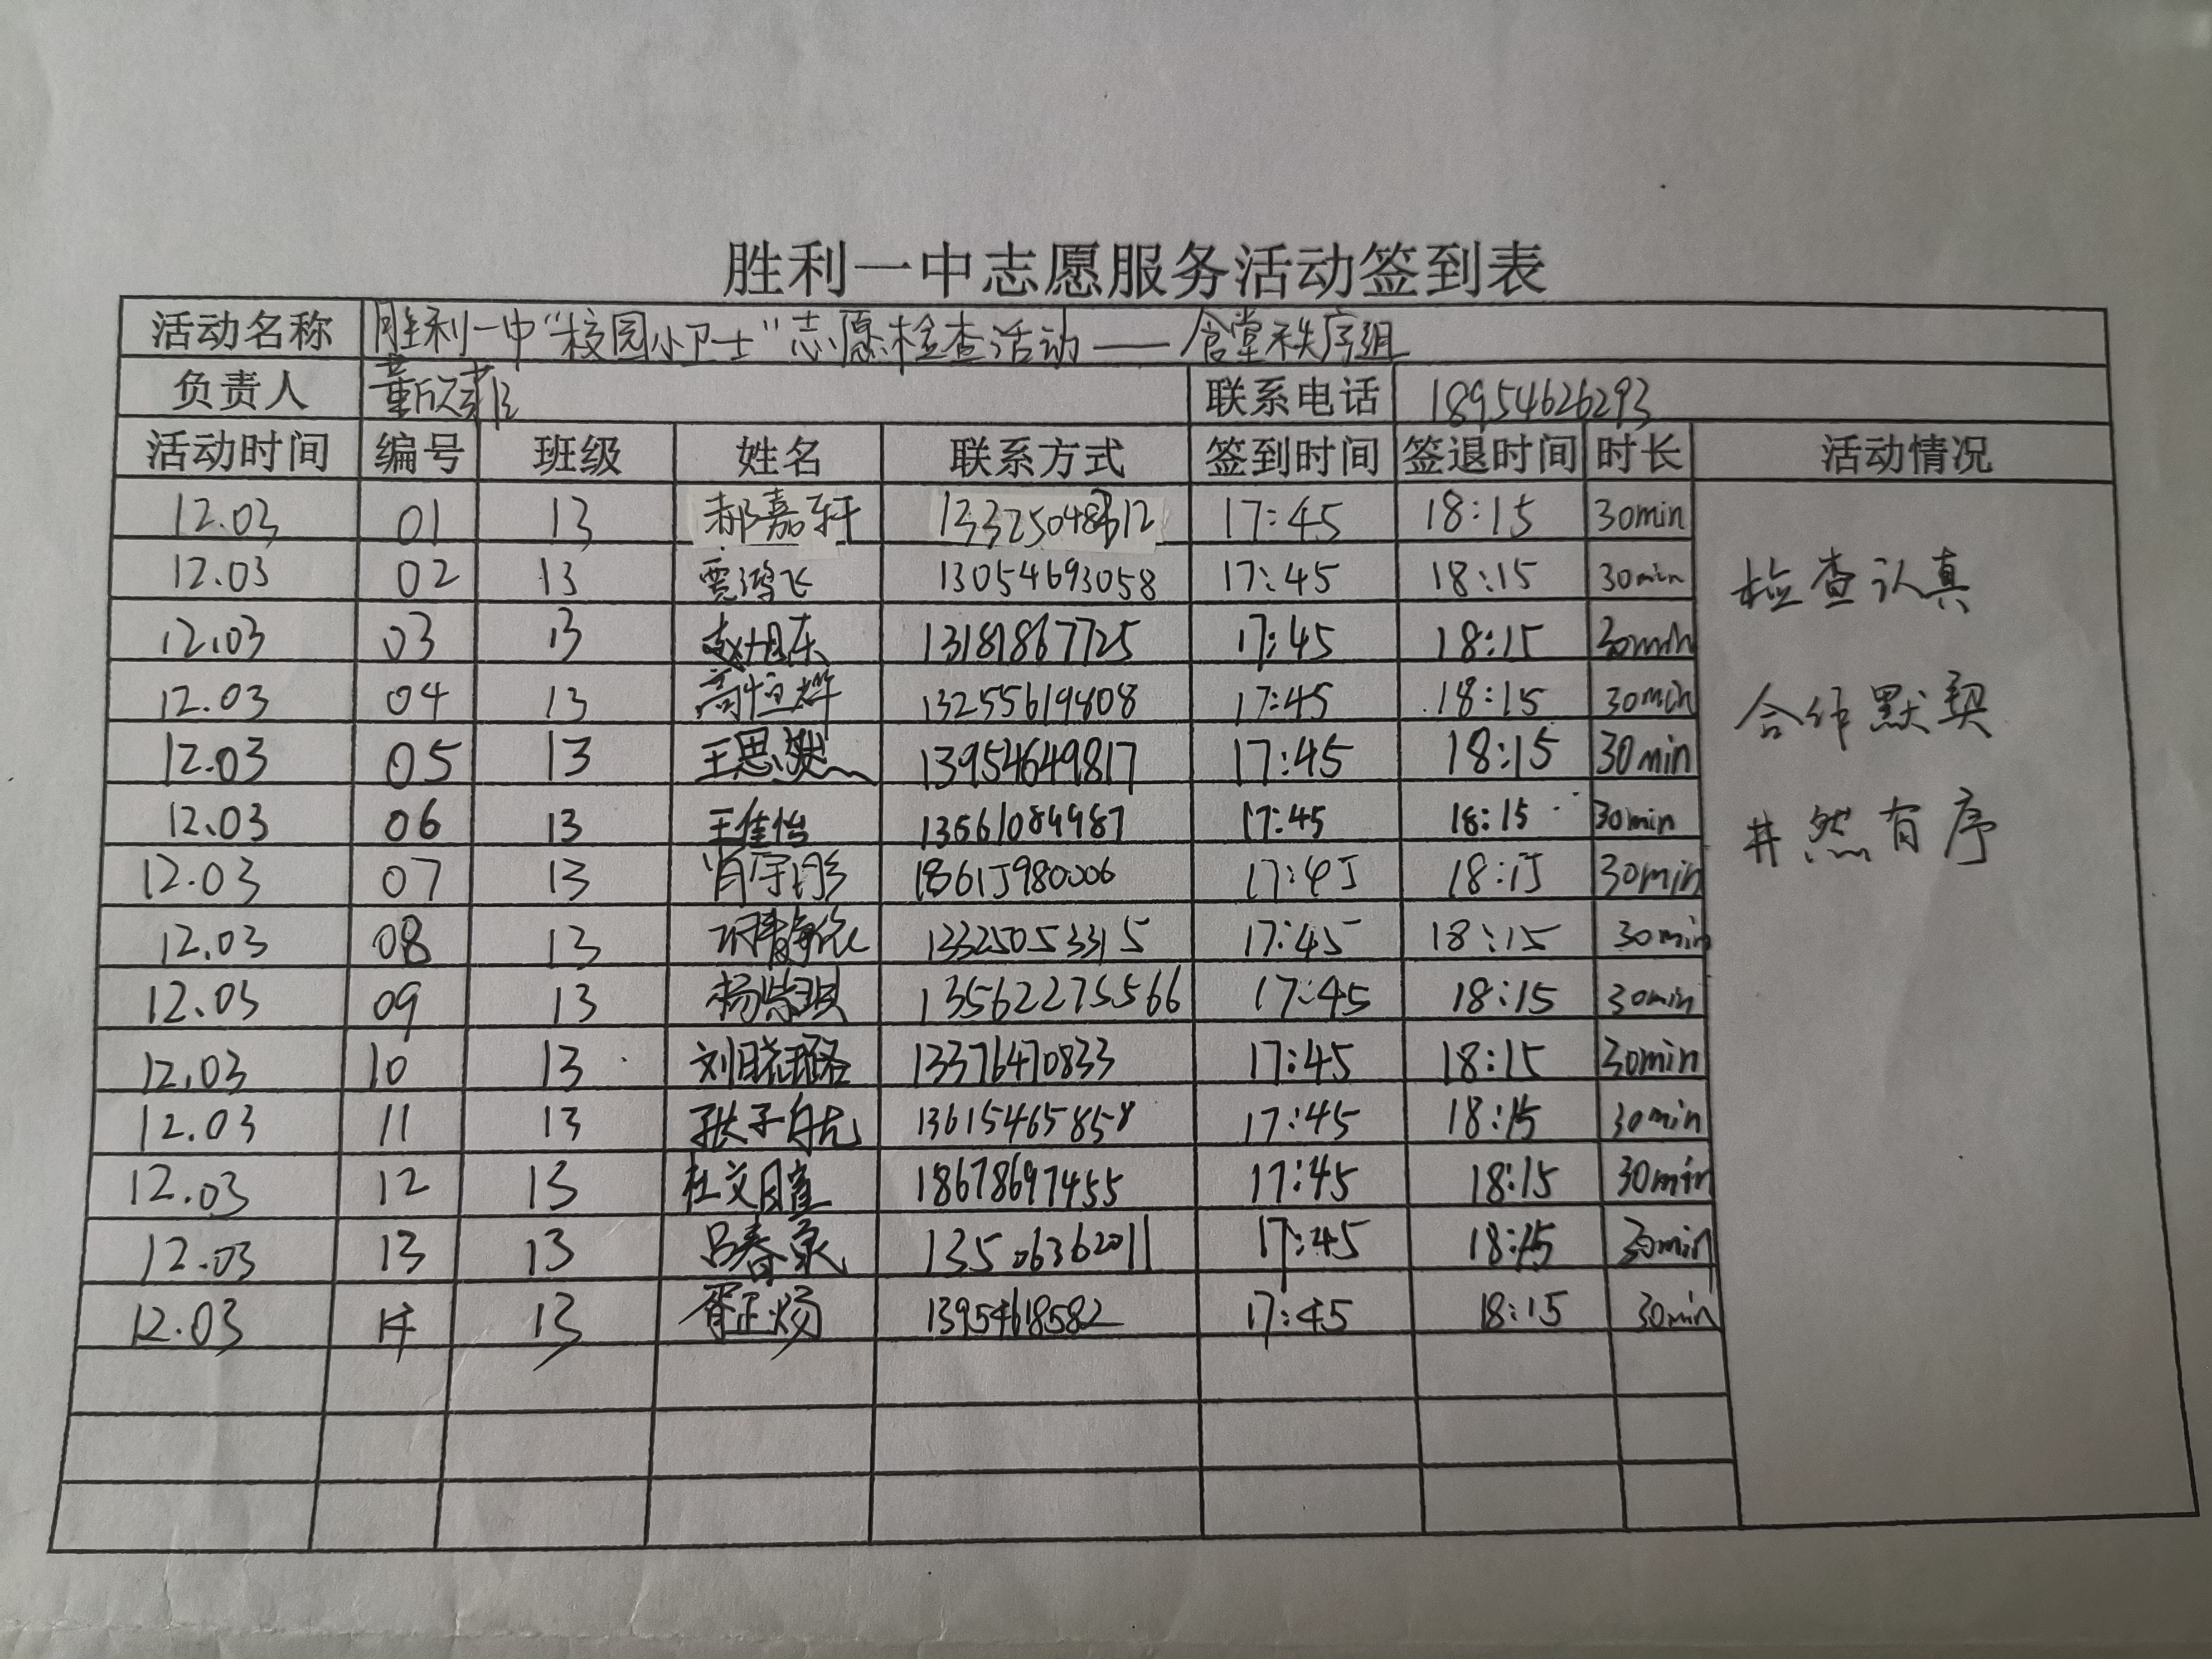 胜利一中志愿服务活动签到表
活动名称 胜利一中“校园小卫士”志愿检查活动——食堂秩序组
负责人 董欣菲 联系电话 18954626293
活动时间 编号 班级 姓名 联系方式 签到时间 签退时间 时长 活动情况
12.03 01 13 郝嘉轩 17:45 18:15 30min
12.03 02 13 贾鸿飞 13054693058 17:45 18:15 30min
12.03 03 13 13181867725 17:45 18:15 30min
12.03 04 13 高恒烨 13255619808 17:45 18:15 30min
12.03 05 13 王思 13954649817 17:45 18:15 30min
12.03 06 13 王佳怡 13561084987 17:45 18:15 30min
12.03 07 13 肖宇彤 18615980006 17:45 18:15 30min
12.03 08 13 13325053315 17:45 18:15 30min
12.03 09 13 杨紫琪 13562275566 17:45 18:15 30min
12.03 10 13 刘晓璐 13376470833 17:45 18:15 30min
12.03 11 13 13615465858 17:45 18:15 30min
12.03 12 13 杜文萱 18678697455 17:45 18:15 30min
12.03 13 13 吕春泉 13506362011 17:45 18:15 30min
12.03 14 13 13954618582 17:45 18:15 30min
检查认真
合作默契
井然有序